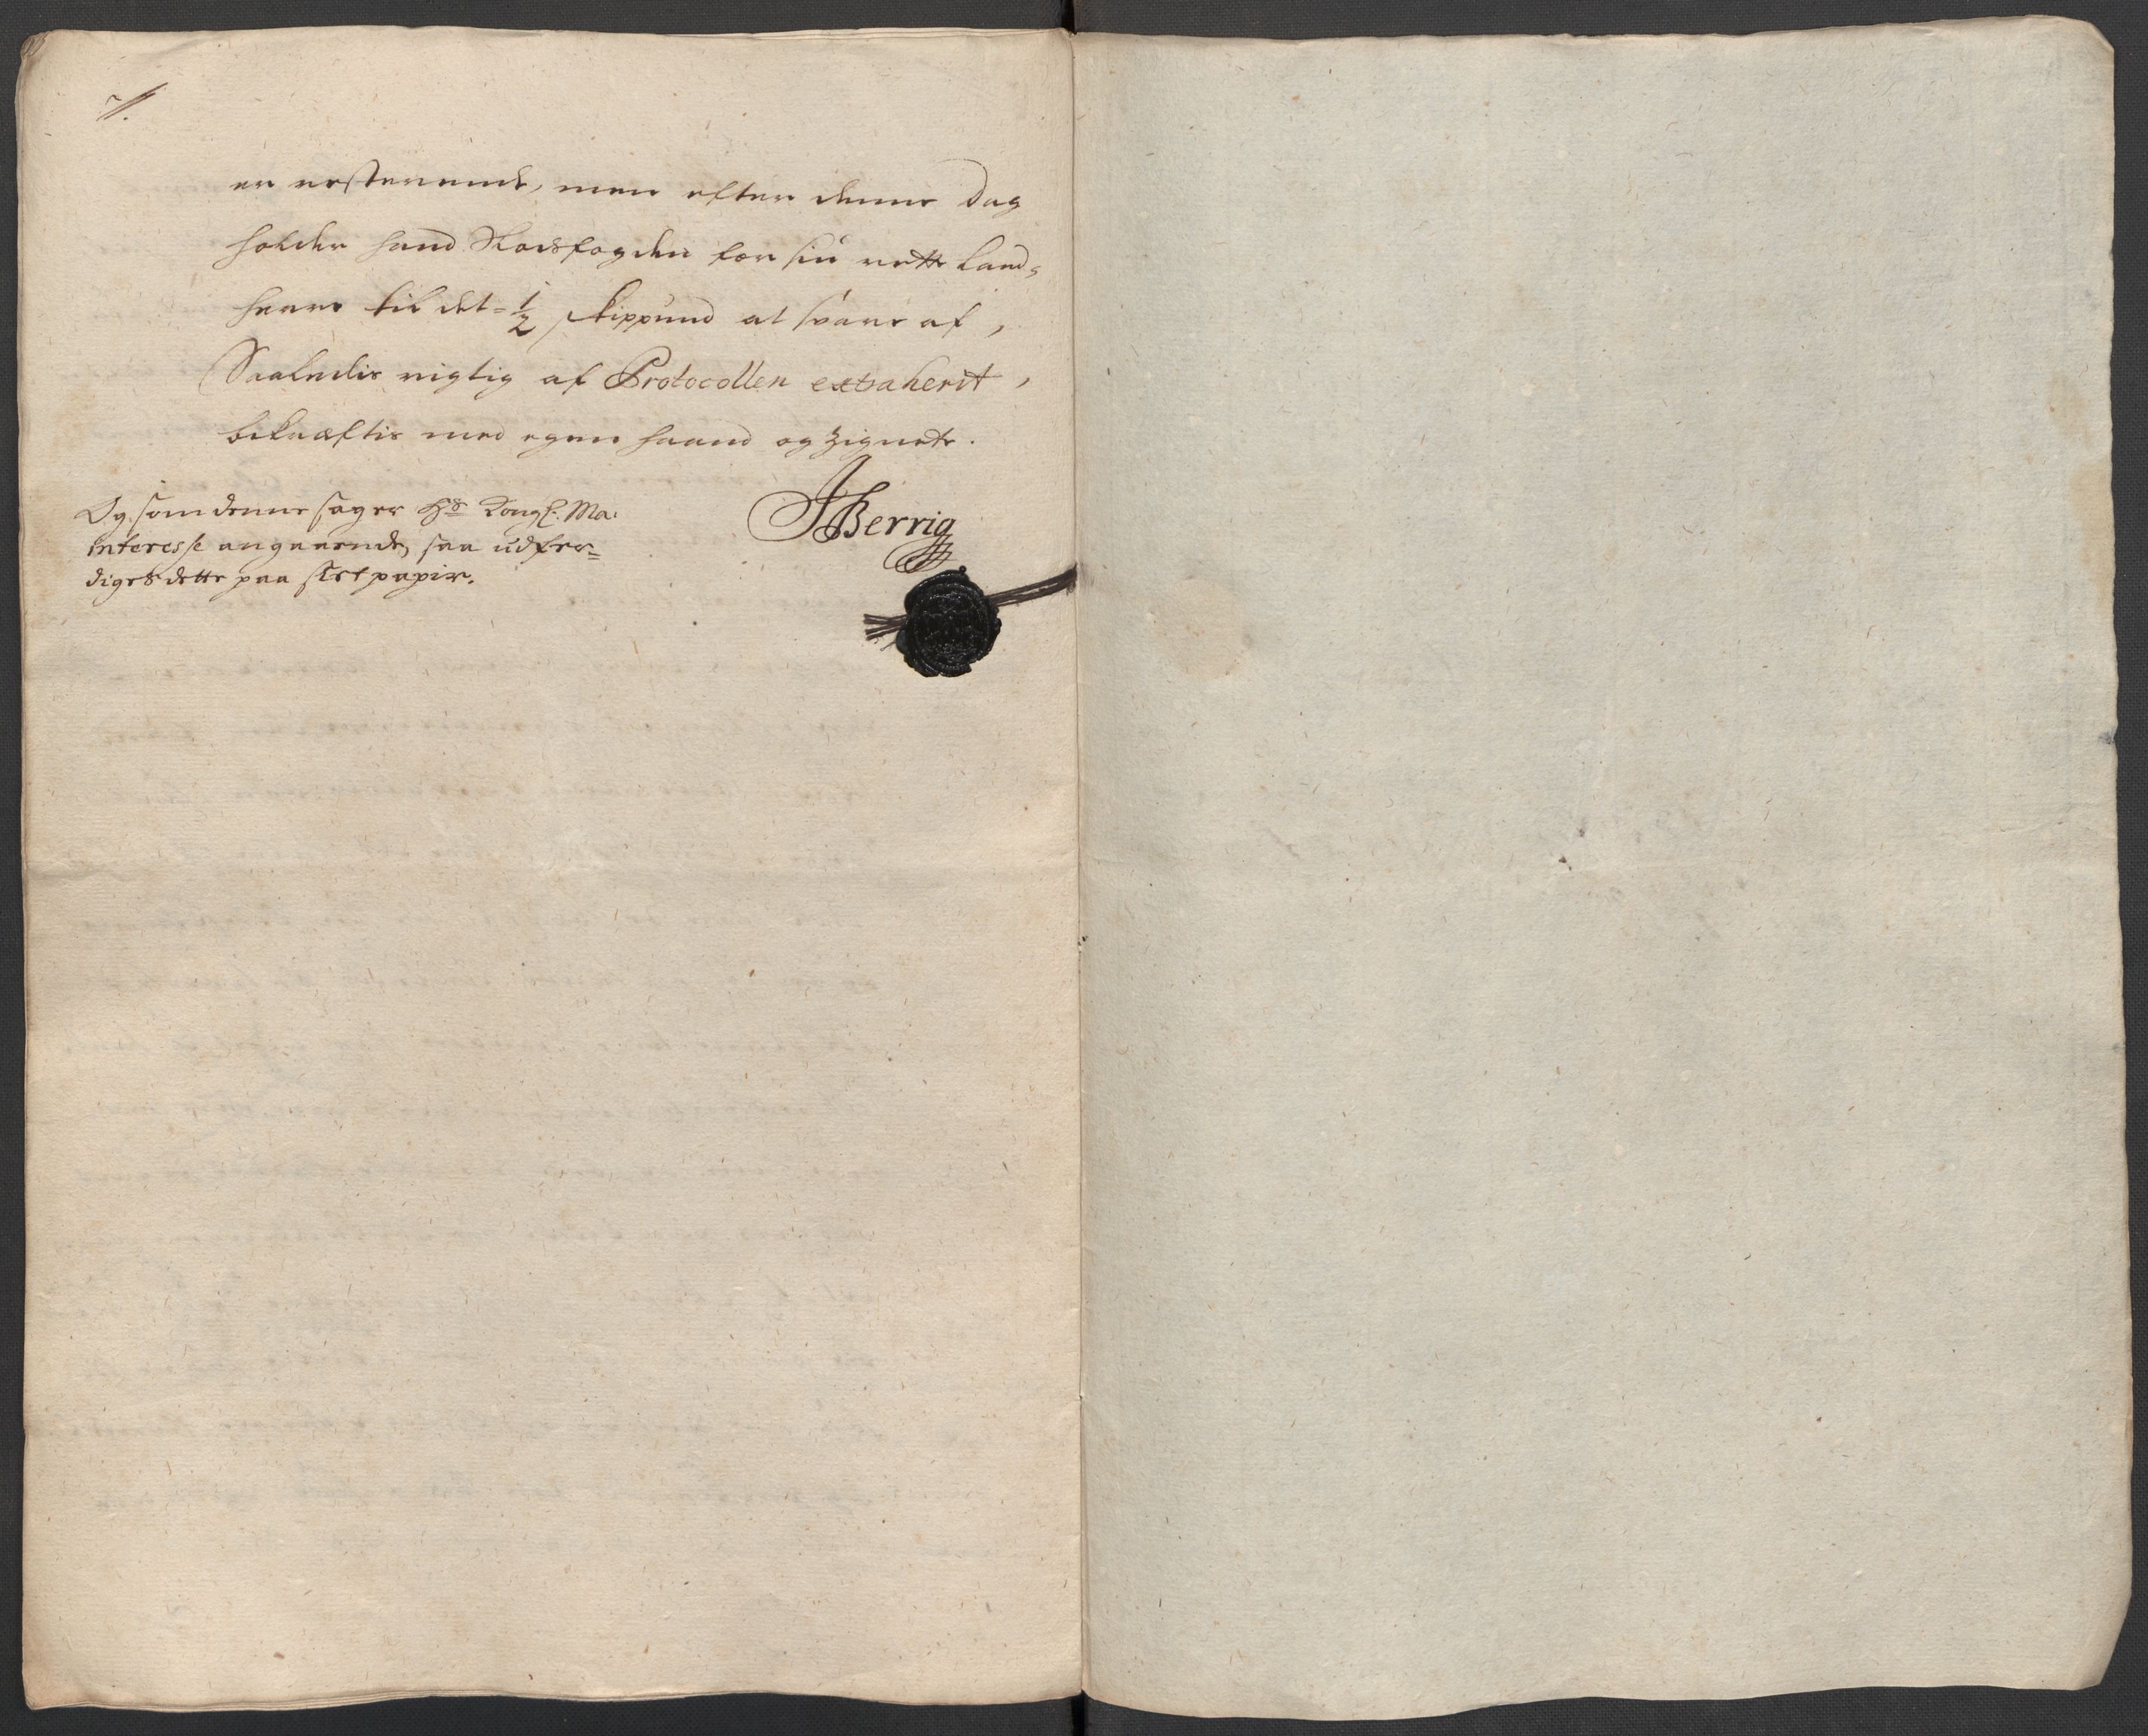 er resterende, men efter denne Dag
holder hand Slodsfogden for sin rette Land-
herre til det = 1/2 skippund at svare af,
Saaledis rigtig af Protocollen extraherit,
bekræftis med egen haand og zignete.
JBerrig
Og som denne sag er Hs Kongl. Ma:
interesse angaaende, saa udfer=
diges dette paa slet papir.